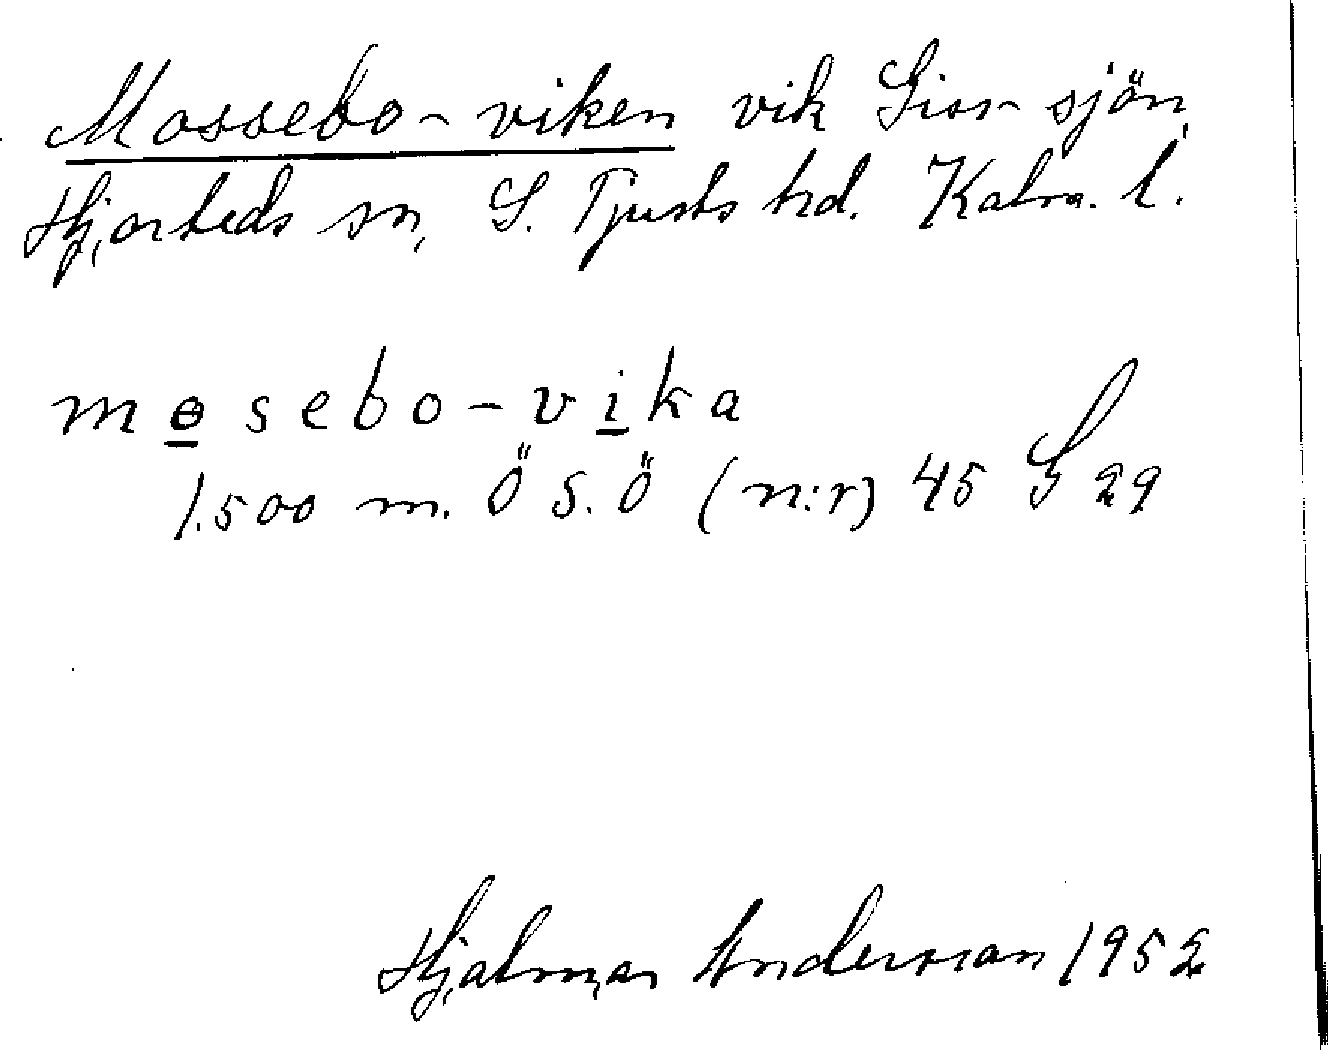 Mossebo-viken vik Siss-sjön,
Hjorteds sn, S. Tjusts hd. Kalm. l.
mɵsebo-vika
1.500 m. Ö S. Ö (n:r) 45 S 29
Hjalmar Andersson 1952